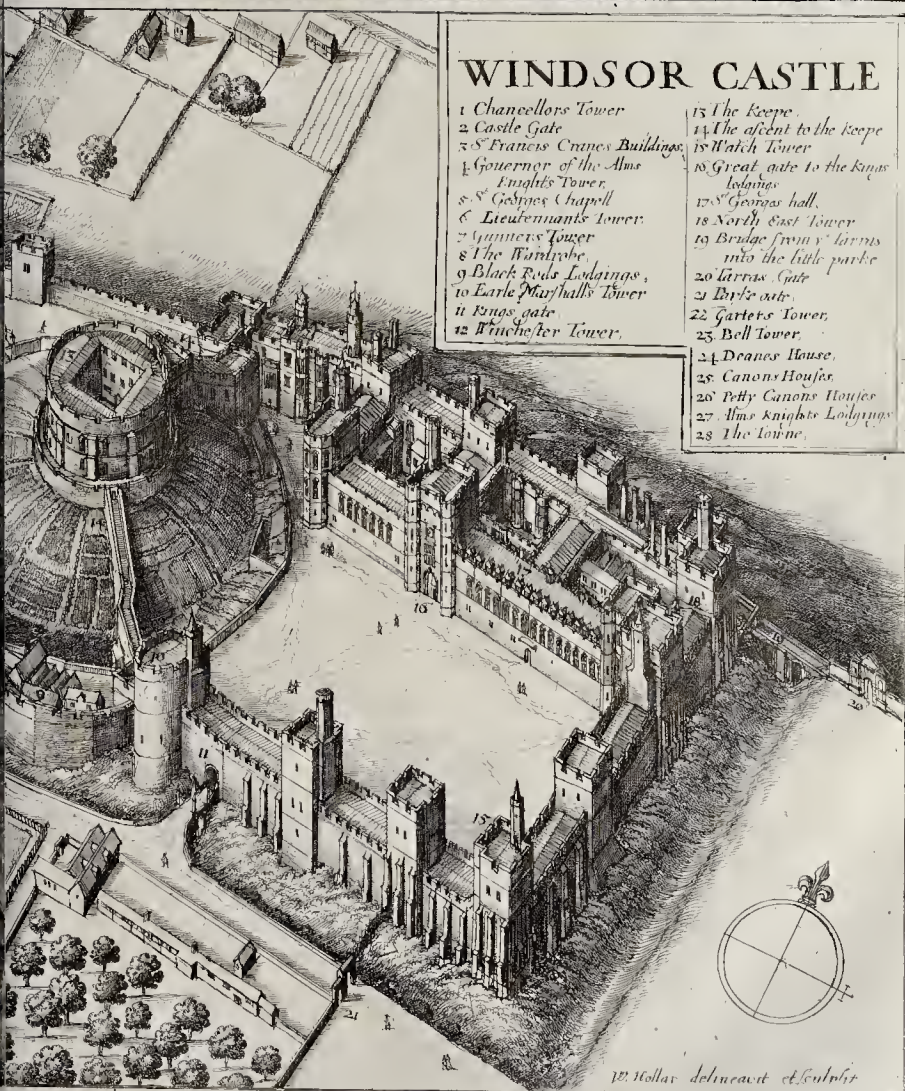 WINDSOR CASTLE
1 Chancellors Tower
2 Castle Gate
3 Sr Francis Cranes Buildings,
4 Gouernor of the Alms
Knights Tower,
5 St Georges Chapell
6 Lieutennants Tower.
7 Gunners Tower
8 The Wardrobe,
9 Black Rods Lodgings,
10 Earle Marshalls Tower
11 Kings gate,
12 Winchester Tower,
13 The Keepe,
14 The ascent to the keepe
15 Watch Tower
16 Great gate to the Kings
lodgings
17 St Georges hall,
18 North East Tower
19 Bridge from ye tarras
into the little parke
20 Tarras Gate
21 Parke gate,
22 Garters Tower,
23 Bell Tower,
24 Deanes House,
25 Canons Houses,
26 Petty Canons Houses
27 Alms Knights Lodgings
28 The Towne,
13
14
16
18
19
20
9
11
15
21
W. Hollar delineavit et sculpsit